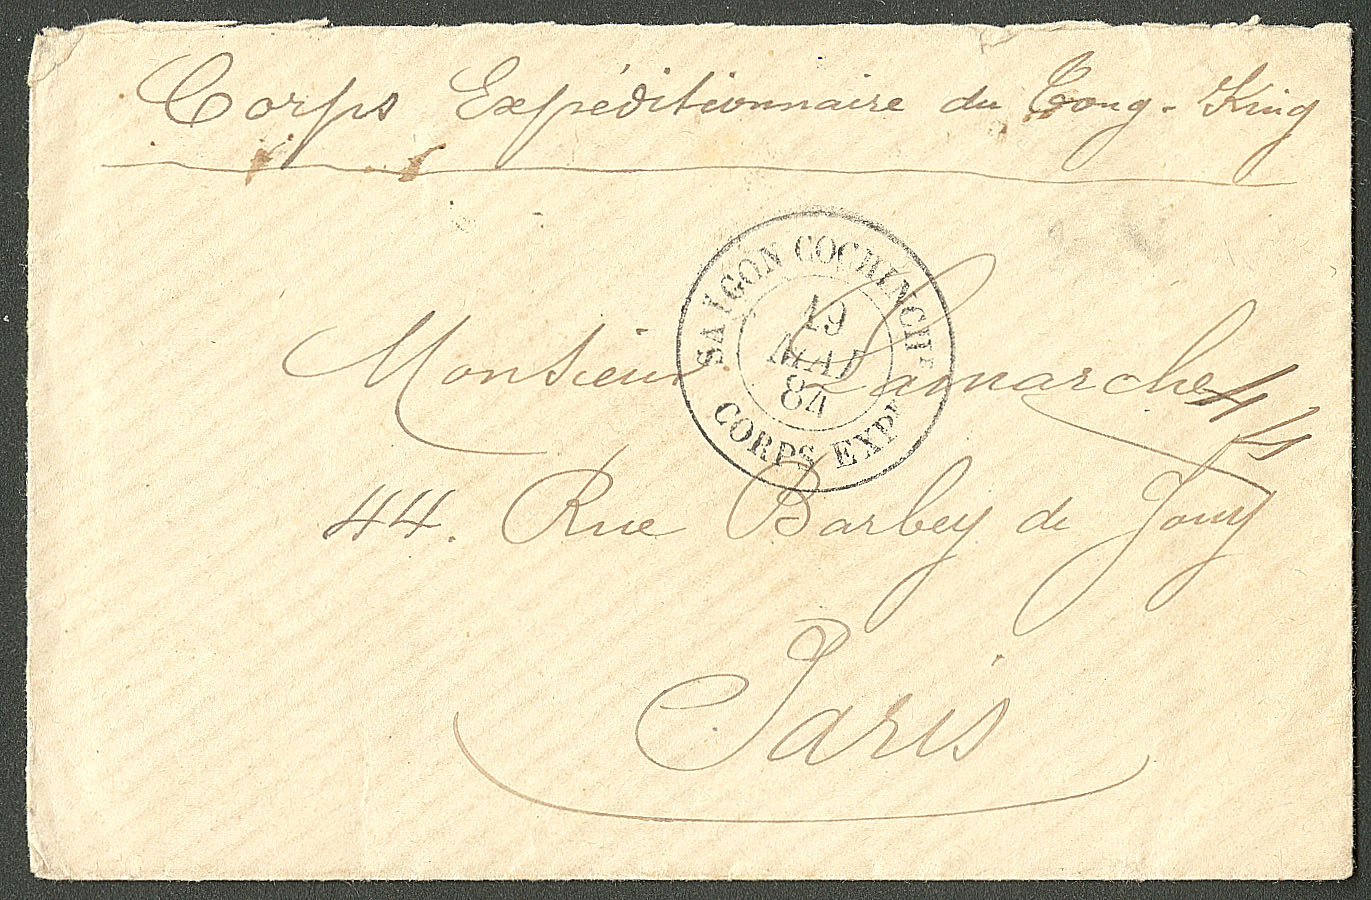 Corps Expéditionnaire du Tong-King
SAIGON COCHINCHE
19
MAI
84
CORPS EXPRE
Monsieur Lamarche
44. Rue Barbey de Jouy
Paris